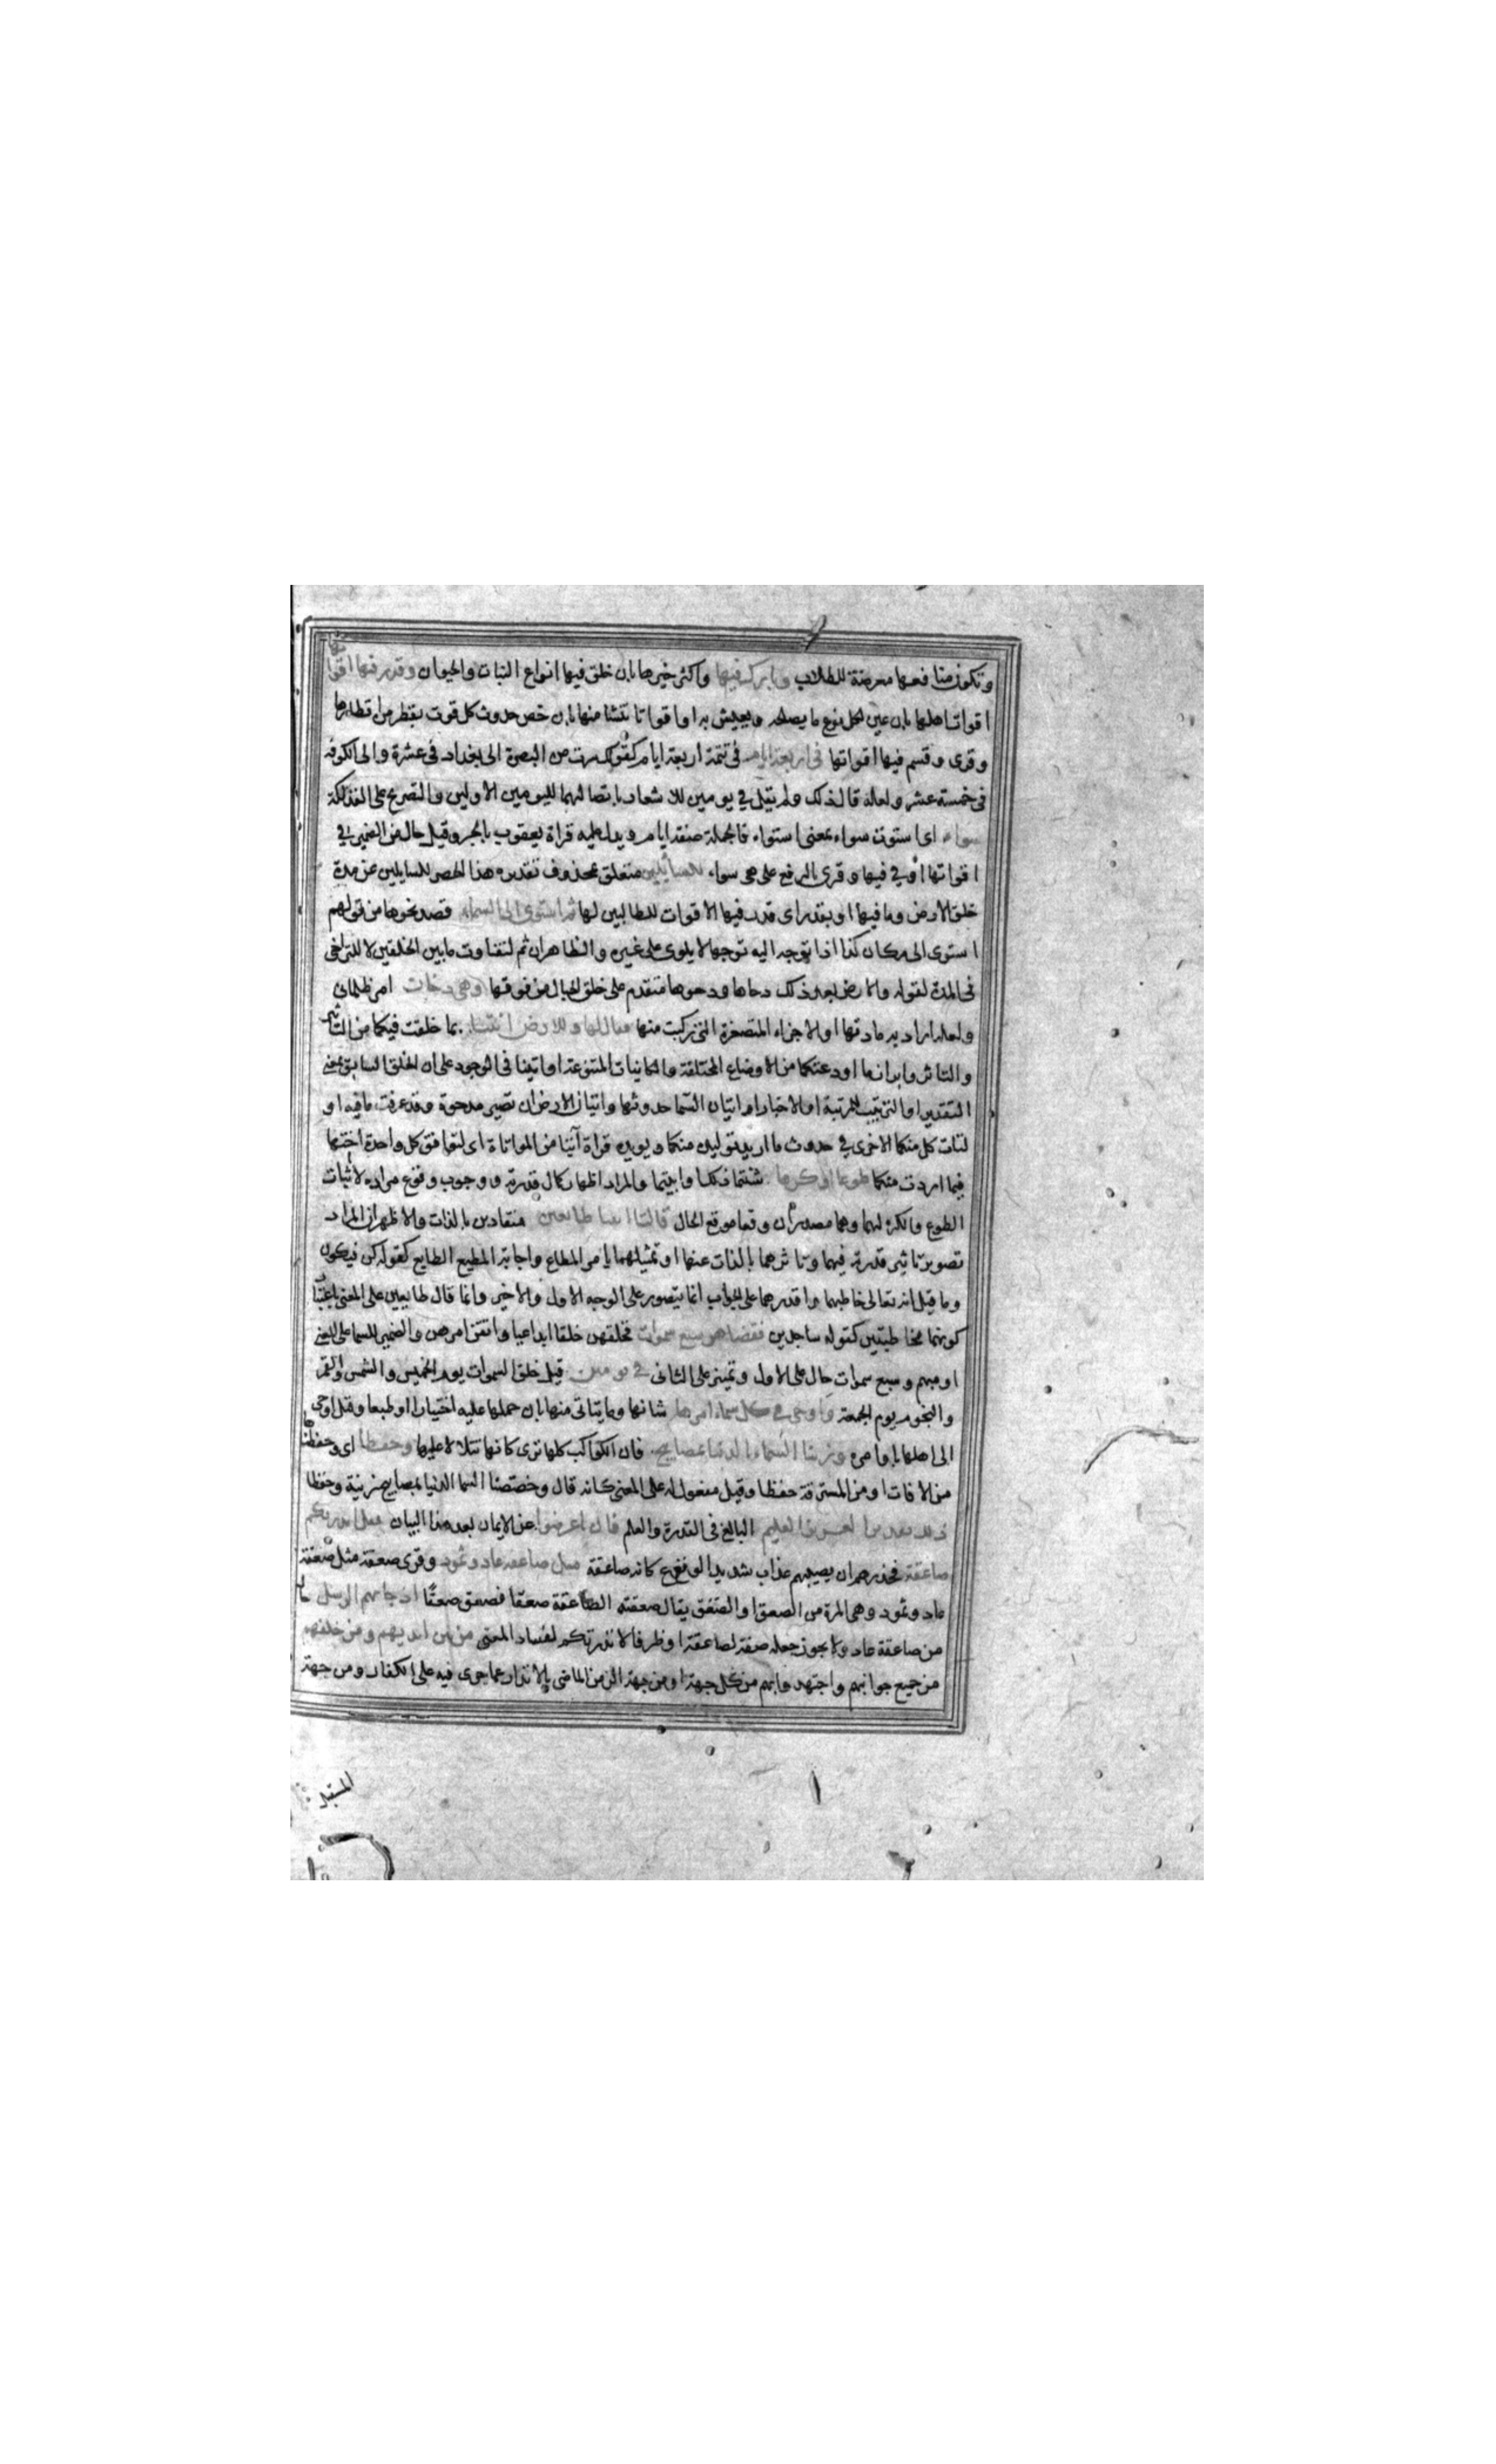 وتكون منافعها معرضة للطلاب وبارك فيها واكثر خيرها بان خلق فيها انواع النبات والحيوان وقدر فيها اقواتها
اقوات اهلها بان عين لكل نوع ما يصلحه ويعيش به او اقواتا تنشا منها بان خص حدوث كل قوت بقطر من اقطارها
وقرى وقسم فيها اقواتها فى اربعة ايام فى تتمة اربعة ايام كقولك سرت من البصرة الى بغداد فى عشرة والى الكوفة
فى خمسة عشر ولعله قال ذلك ولم يقل فى يومين للاشعار باتصالهما لليومين الاولين والتصريح على الفذلكة
سواء اى استوت سواء بمعنى استواء فالجملة صفة ايام ويدل عليه قراة يعقوب بالجر وقيل حال من الضمير فى
اقواتها او فى فيها وقرى بالرفع على هى سواء للسايلين متعلق بمحذوف تقديره هذا الحصر للسايلين عن مدة
خلق الارض وما فيها او بقدر اى قدر فيها الاقوات للطالبين لها ثم استوى الى السماء قصد نحوها من قولهم
استوى الى مكان كذا اذا توجه اليه توجها لا يلوى على غيره والظاهر ان ثم لتفاوت ما بين الخلقين لا للتراخى
فى المدة لقوله والارض بعد ذلك دحاها ودحوها متقدم على خلق الجبال من فوقها وهى دخان امر ظلمانى
ولعله اراد به مادتها او الاجزاء المتصغرة التى ركبت منها فقال لها وللارض ائتيا بما خلقت فيكما من التاثير
والتاثر وابرزا ما اودعتكما من الاوضاع المختلفة والكاينات المتنوعة او اتيا فى الوجود على ان الخلق السابق بمعنى
التقدير او الترتيب للرتبة او الاخبار او اتيان السما حدوثها واتيان الارض ان تصير مدحوة وقد عرفت ما فيه او
لتات كل منكما الاخرى فى حدوث ما اريد توليده منكما ويويده قراة آتيا من المواتاة اى لتوافق كل واحدة اختها
فيما اردت منكما طوعا او كرها شئتما ذلك او ابيتما والمراد اظهار كمال قدرته ووجوب وقوع مراده لا اثبات
الطوع والكره لهما وهما مصدران وقعا موقع الحال قالتا اتينا طايعين منقادين بالذات والاظهر ان المراد
تصوير تاثير قدرته فيهما وتاثرهما بالذات عنها او تمثيلهما بامر المطاع واجابة المطيع الطايع كقوله كن فيكون
وما قيل انه تعالى خاطبهما واقدرهما على الجواب انما يتصور على الوجه الاول والاخير وانما قال طايعين على المعنى باعتبار
كونهما مخاطبتين كقوله ساجدين فقضاهن سبع سموات فخلقهن خلقا ابداعيا واتقن امرهن والضمير للسما على المعنى
او مبهم وسبع سموات حال على الاول وتمييز على الثانى فى يومين قيل خلق السموات يوم الخميس والشمس والقمر
والنجوم يوم الجمعة واوحى فى كل سماء امرها شانها وما يتاتى منها بان حملها عليه اختيارا او طبعا وقيل اوحى
الى اهلها باوامره وزينا السماء الدنيا بمصابيح فان الكواكب كلها ترى كانها تتلالا عليها وحفظا اى وحفظناها
من الافات او من المسترقة حفظا وقيل مفعول له على المعنى كانه قال وخصصنا السما الدنيا بمصابيح زينة وحفظا
ذلك تقدير العزيز العليم البالغ فى القدرة والعلم فان اعرضوا عن الايمان بعد هذا البيان فقل انذرتكم
صاعقة فحذرهم ان يصيبهم عذاب شديد الوقع كانه صاعقة مثل صاعقة عاد وثمود وقرى صعقة مثل صعقة
عاد وثمود وهى المرة من الصعق او الصعق يقال صعقته الصاعقة صعقا فصعق صعقا اذ جاتهم الرسل حال
من صاعقة عاد ولا يجوز جعله صفة لصاعقة او ظرفا لانذرتكم لفساد المعنى من بين ايديهم ومن خلفهم
من جميع جوانبهم واجتهدوا بهم من كل جهة او من جهة الزمن الماضى بالانذار عما جرى فيه على الكفار ومن جهة
المستقبل